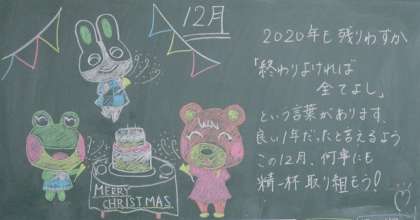 12月
2020年も残りわずか
「終わりよければ
全てよし」
という言葉があります。
良い1年だったと言えるよう
この12月、何事にも
精一杯取り組もう!
MERRY
CHRISTMAS